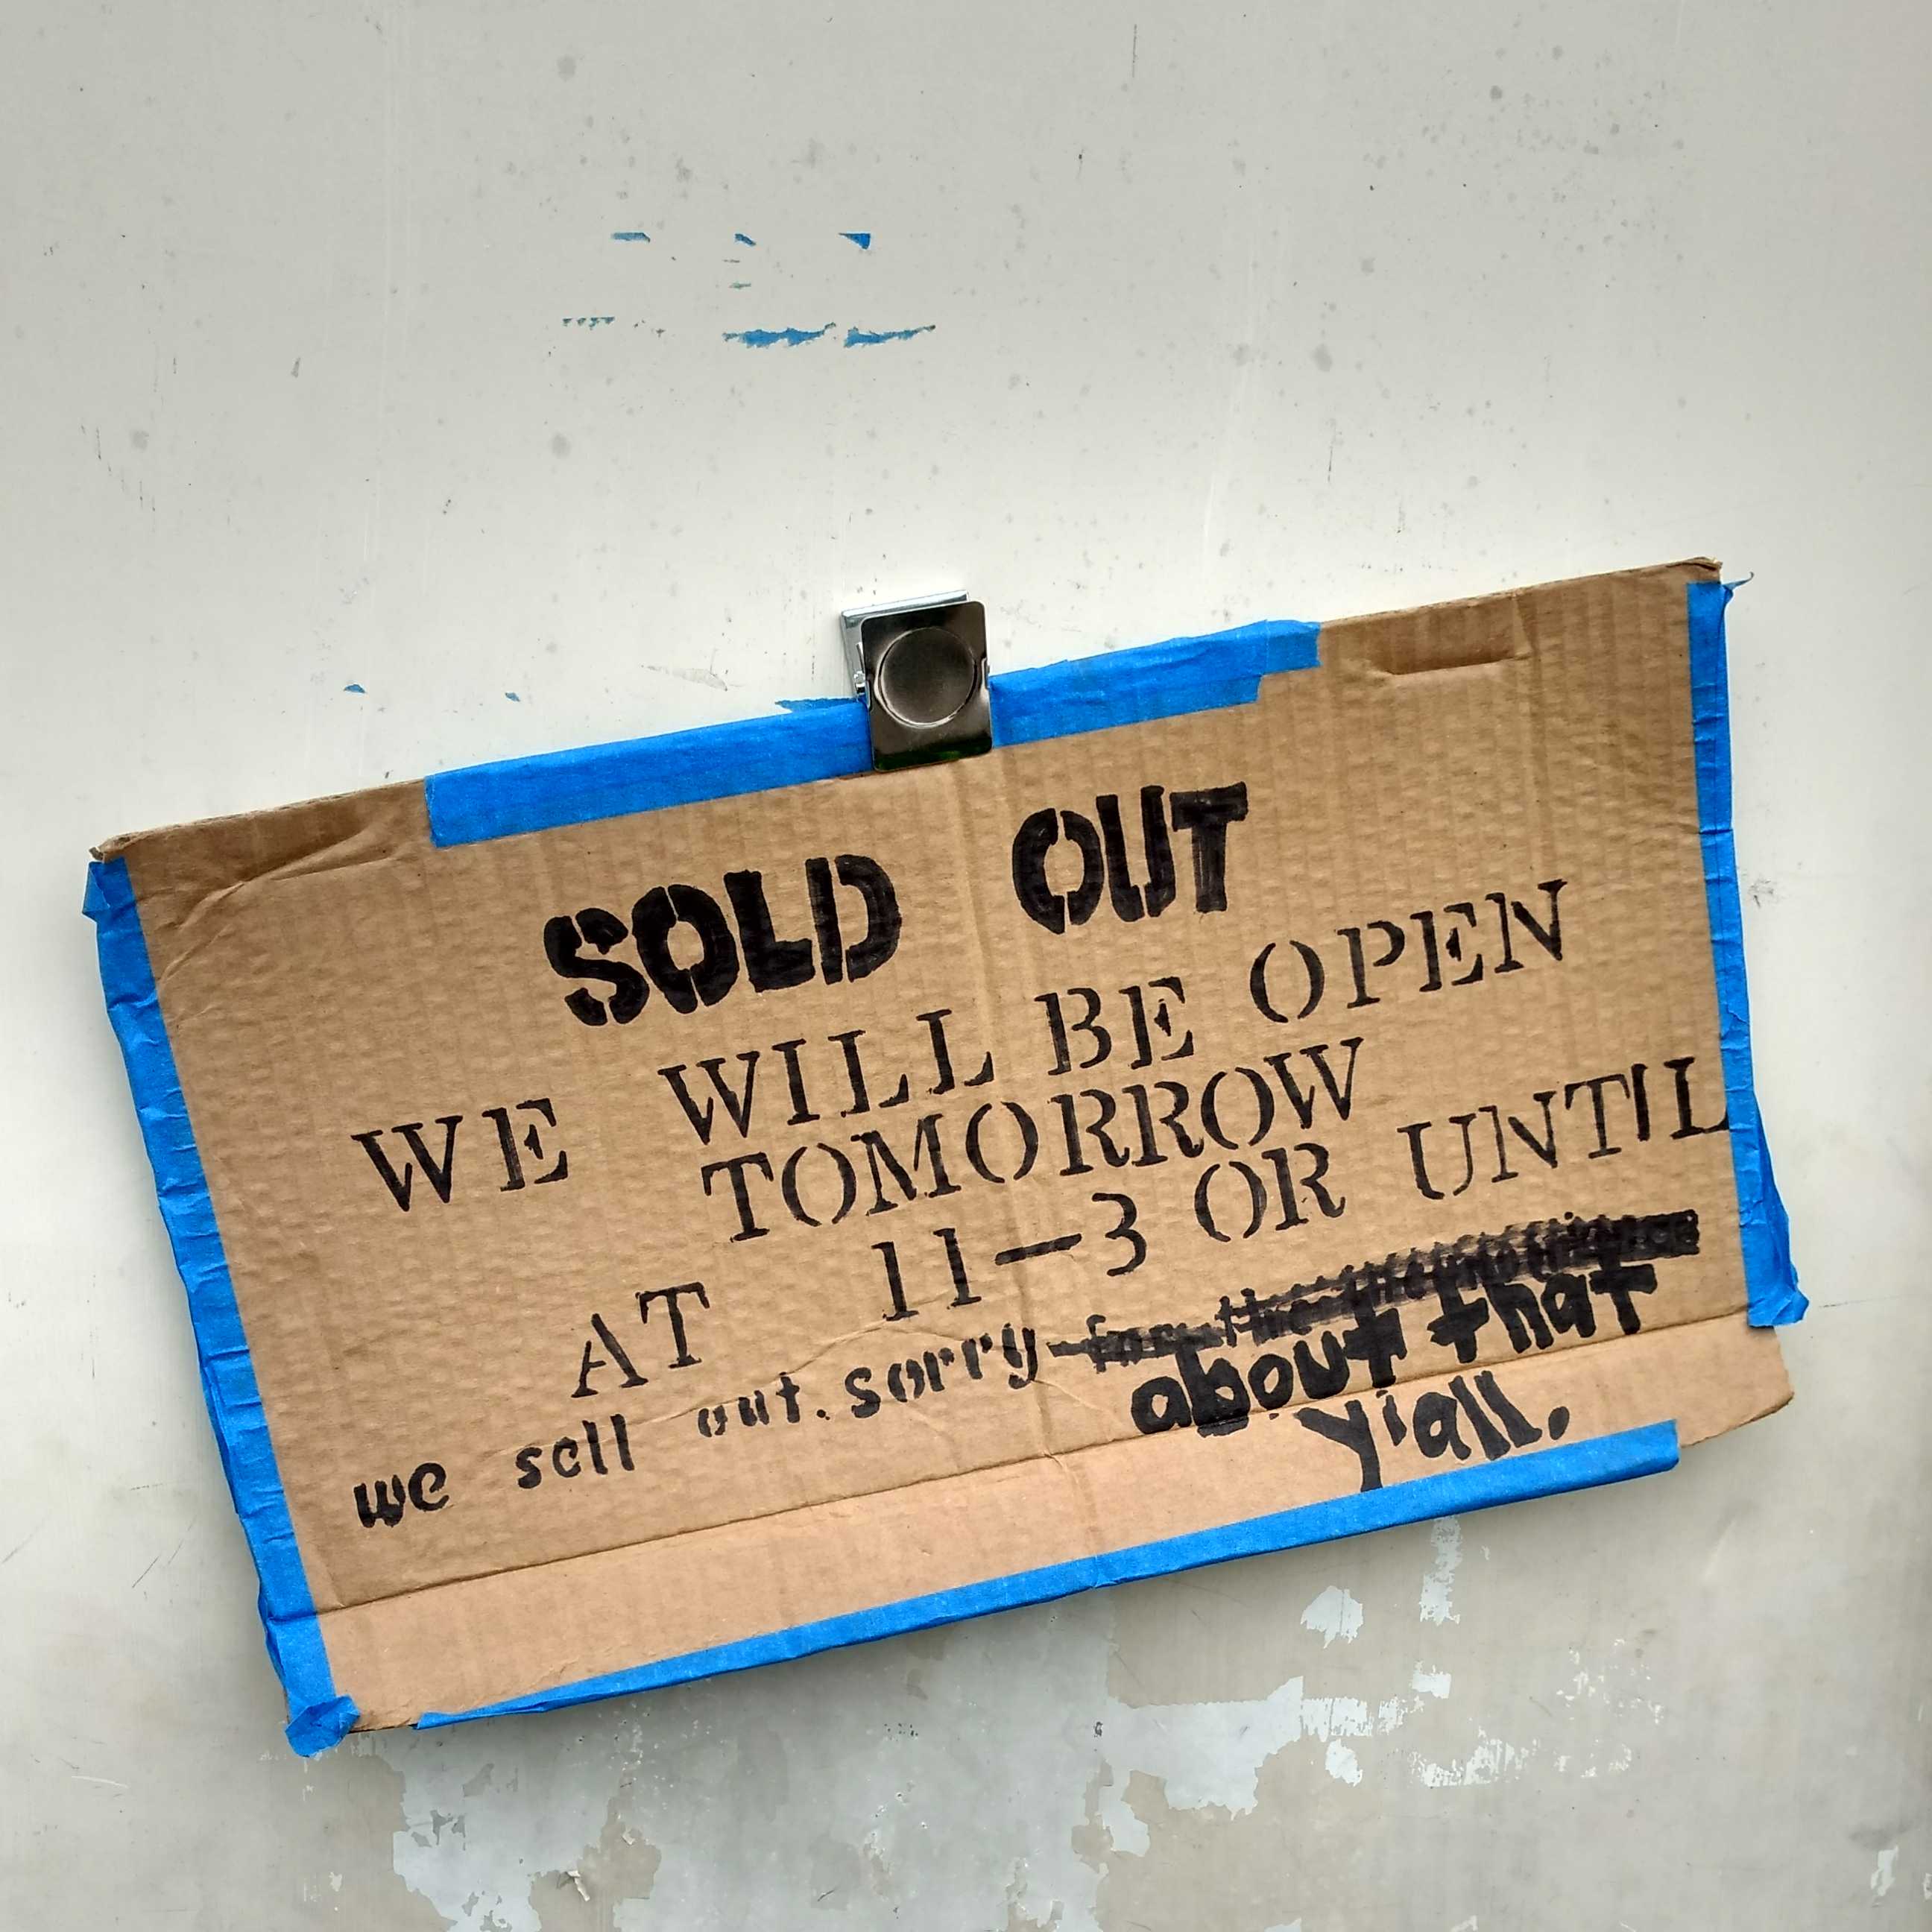 SOLD OUT
WE WILL BE OPEN
TOMORROW
AT 11-3 OR UNTIL
we sell out. sorry
about that
y'all.